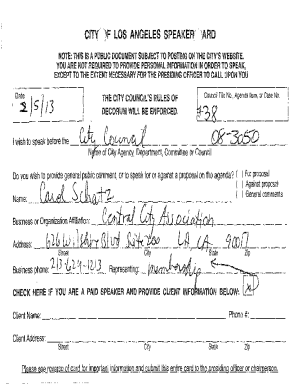 CITY OF LOS ANGELES SPEAKER CARD
NOTE: THIS IS A PUBLIC DOCUMENT SUBJECT TO POSTING ON THE CITY'S WEBSITE.
YOU ARE NOT REQUIRED TO PROVIDE PERSONAL INFORMATION IN ORDER TO SPEAK,
EXCEPT TO THE EXTENT NECESSARY FOR THE PRESIDING OFFICER TO CALL UPON YOU
Date
2/5/13
THE CITY COUNCIL'S RULES OF
DECORUM WILL BE ENFORCED.
Council File No., Agenda Item, or Case No.
#38
08-3050
I wish to speak before the City Council
Name of City Agency, Department, Committee or Council
Do you wish to provide general public comment, or to speak for or against a proposal on the agenda? ( ) For proposal
( ) Against proposal
( ) General comments
Name: Carol Schatz
Business or Organization Affiliation: Central City Association
Address: 626 Wilshire Blvd Suite 200 LA CA 90017
Street City State Zip
Business phone: 213-624-1213 Representing: membership
CHECK HERE IF YOU ARE A PAID SPEAKER AND PROVIDE CLIENT INFORMATION BELOW:
Client Name: Phone #:
Client Address:
Street City State Zip
Please see reverse of card for important information and submit this entire card to the presiding officer or chairperson.